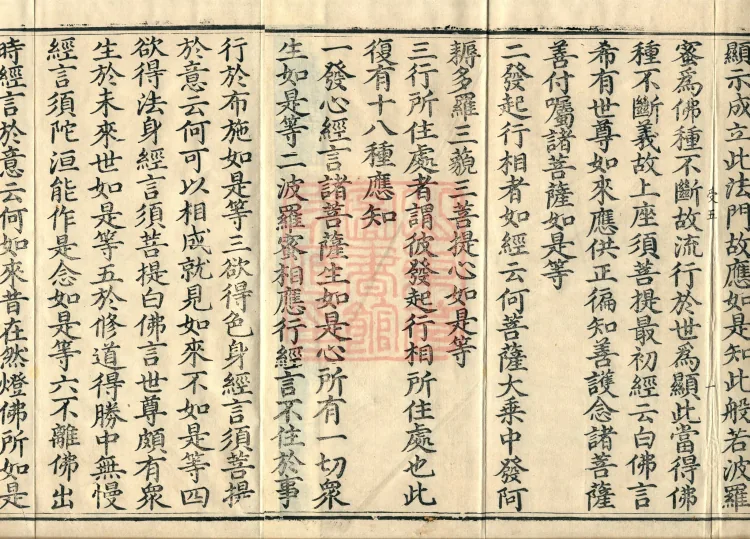 顯示成立此法門故應如是知此般若波羅
蜜爲佛種不斷故流行於世爲顯此當得佛
種不斷義故上座須菩提最初經云白佛言
希有世尊如來應供正徧知善護念諸菩薩
善付囑諸菩薩如是等
二發起行相者如經云何菩薩大乘中發阿
耨多羅三藐三菩提心如是等
三行所住處者謂彼發起行相所住處也此
復有十八種應知
一發心經言諸菩薩生如是心所有一切衆
生如是等二波羅蜜相應行經言不住於事
行於布施如是等三欲得色身經言須菩提
於意云何可以相成就見如來不如是等四
欲得法身經言須菩提白佛言世尊頗有衆
生於未來世如是等五於修道得勝中無慢
經言須陀洹能作是念如是等六不離佛出
時經言於意云何如來昔在然燈佛所如是
受五
一